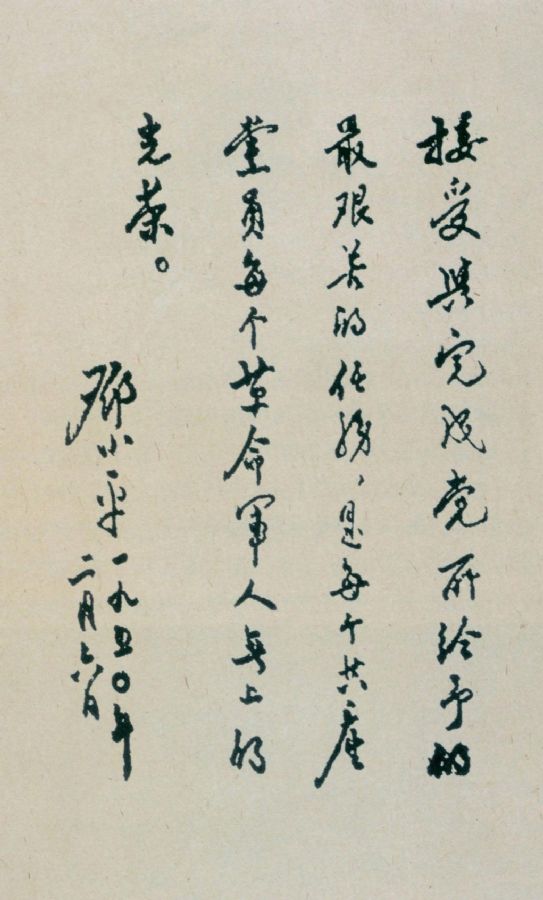 接受與完成党所给予的
最艰苦的任務，是每个共產
党員每个革命軍人無上的
光荣。
鄧小平一九五〇年
二月六日